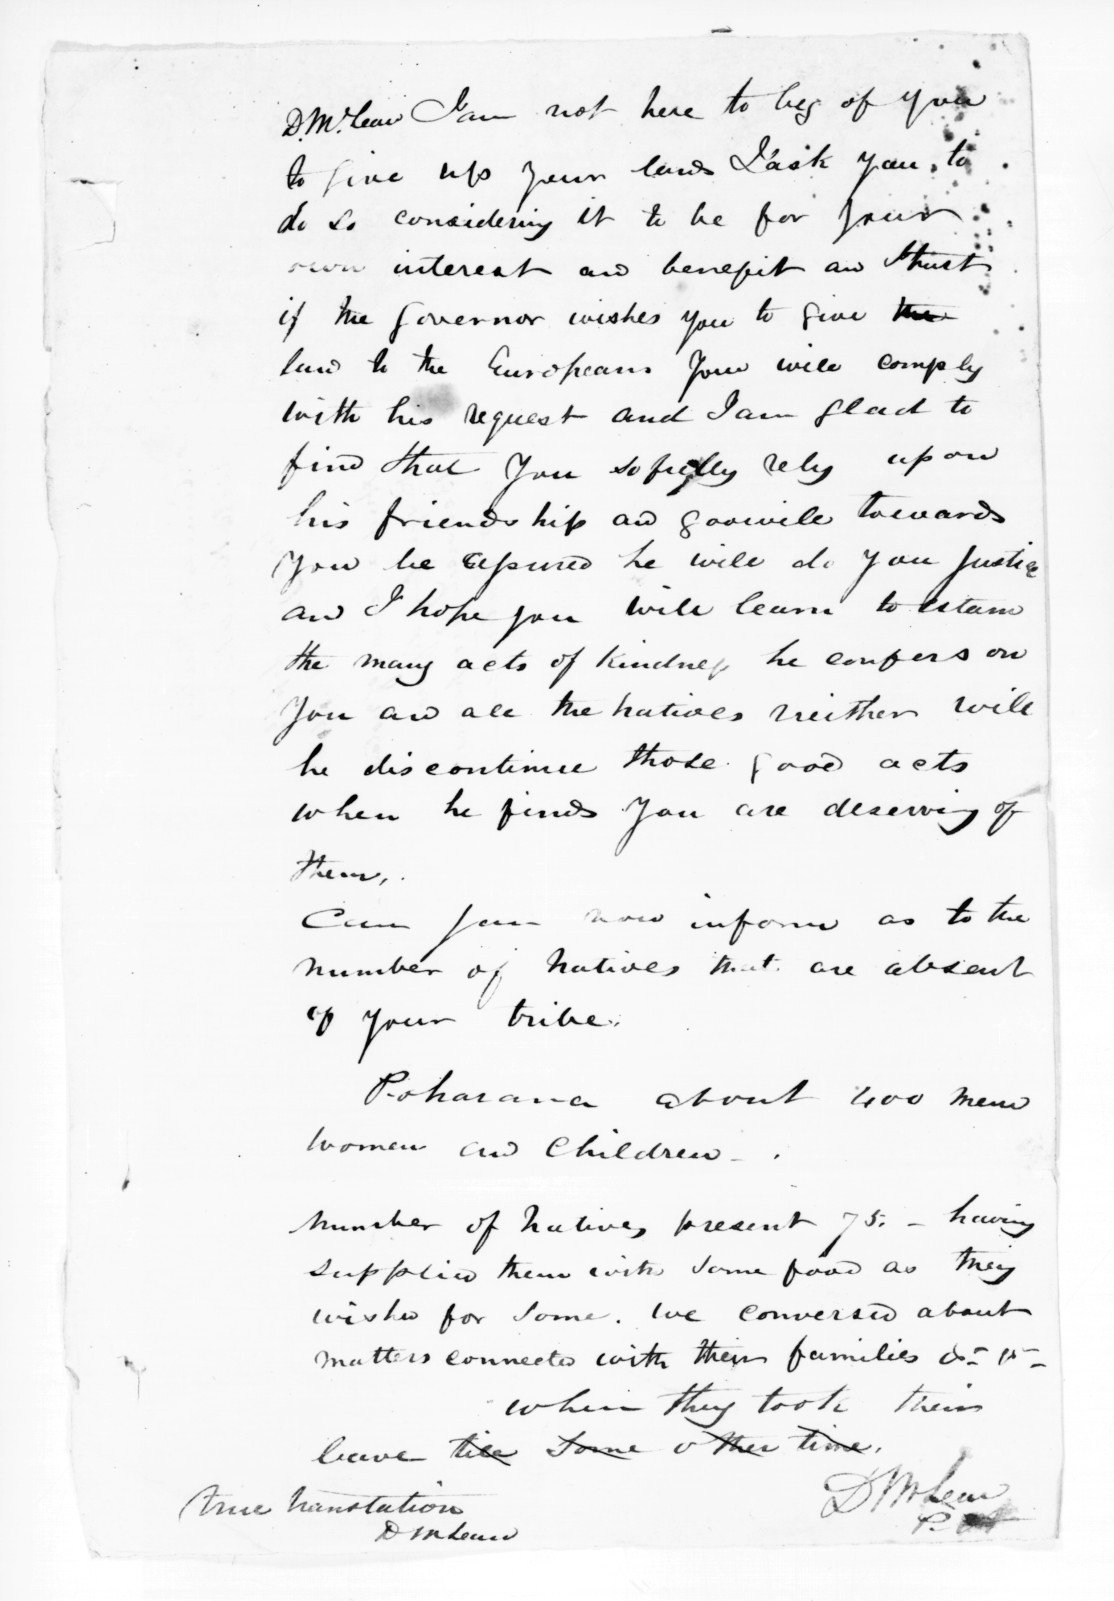 D. McLean I am not here to beg of you
to give up your lands I ask you to
do so considering it to be for your
own interest and benefit and I trust
if the Governor wishes you to give the
land to the Europeans you will comply
with his request and I am glad to
find that you so fully rely upon
his friendship and goodwill towards
you be assured he will do you justice
and I hope you will learn to estam
the many acts of kindness he confers on
you and all the natives neither will
he discontinue those good acts
when he finds you are deserving of
them.
Can you now inform as to the
number of natives that are absent
of your tribe.
Poharama about 400 men
women and children.
Number of natives present 75. - having
supplied them with some food as they
wished for some. We conversed about
matters connected with their families &c &c
when they took their
leave till some other time.
D McLean
P.
True translation
D McLean